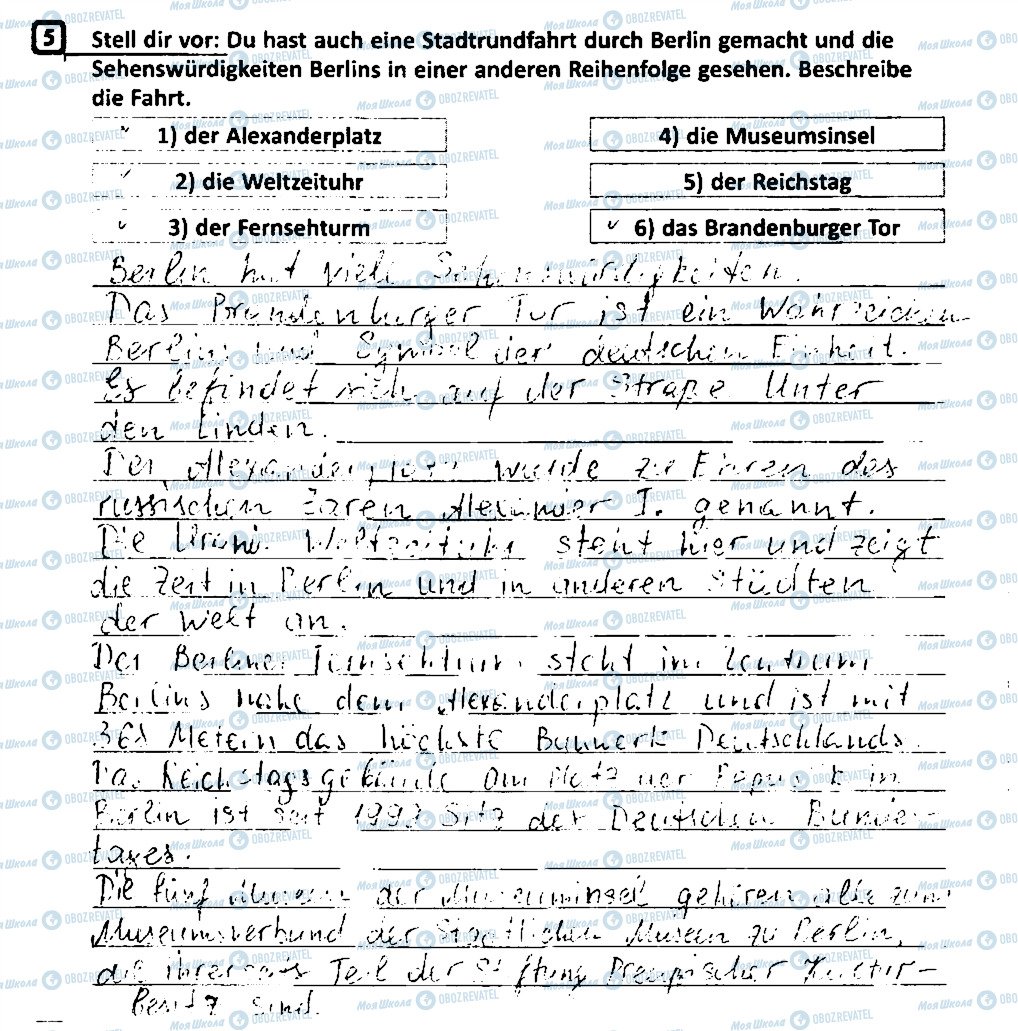 5 Stell dir vor: Du hast auch eine Stadtrundfahrt durch Berlin gemacht und die
Sehenswürdigkeiten Berlins in einer anderen Reihenfolge gesehen. Beschreibe
die Fahrt.
1) der Alexanderplatz
4) die Museumsinsel
2) die Weltzeituhr
5) der Reichstag
3) der Fernsehturm
6) das Brandenburger Tor
Berlin hat viele Sehenswürdigkeiten.
Das Brandenburger Tor ist ein Wahrzeichen
Berlins und Symbol der deutschen Einheit.
Es befindet sich auf der Straße Unter
den Linden.
Der Alexanderplatz wurde zu Ehren des
russischen Zaren Alexander I. genannt.
Die Urania Weltzeituhr steht hier und zeigt
die Zeit in Berlin und in anderen Städten
der Welt an.
Der Berliner Fernsehturm steht im Zentrum
Berlins nahe dem Alexanderplatz und ist mit
368 Metern das höchste Bauwerk Deutschlands.
Das Reichstagsgebäude am Platz der Republik in
Berlin ist seit Sitz des Deutschen Bundes-
tages.
Die fünf Museen der Museuminsel gehören alle zum
Museumsverbund der Staatlichen Museen zu Berlin,
die ihrerseits Teil der Stiftung Preußischer Kultur-
besitz sind.
МояШкола OBOZREVATEL